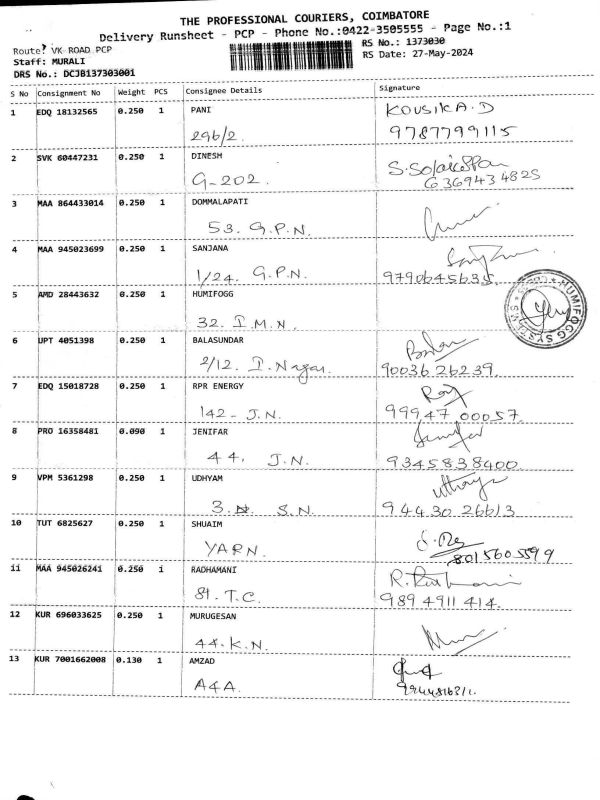 THE PROFESSIONAL COURIERS, COIMBATORE
Delivery Runsheet - PCP - Phone No.:0422-3505555 - Page No.:1
Route: VK ROAD PCP
RS No.: 1373030
Staff: MURALI
RS Date: 27-May-2024
DRS No.: DCJB137303001
S No Consignment No Weight PCS Consignee Details Signature
1 EDQ 18132565 0.250 1 PANI KOUSIKA.D
296/2. 9787799115
2 SVK 60447231 0.250 1 DINESH
G-202. 6369434825
3 MAA 864433014 0.250 1 DOMMALAPATI
53. G.P.N.
4 MAA 945023699 0.250 1 SANJANA
1/24. G.P.N. 9790645635
5 AMD 28443632 0.250 1 HUMIFOGG
HUMIFOGG SYSTEMS
32. I.M.N.
6 UPT 4051398 0.250 1 BALASUNDAR
2/12. I. Nagar. 90036 26239
7 EDQ 15018728 0.250 1 RPR ENERGY Roy
142- J.N. 99947 00057
8 PRO 16358481 0.090 1 JENIFAR Jenifar
44. J.N. 9345838400
9 VPM 5361298 0.250 1 UDHYAM uthaya
3. S.N. 94430 26613
10 TUT 6825627 0.250 1 SHUAIM
YARN. 8015605599
11 MAA 945026241 0.250 1 RADHAMANI
81. T.C. 9894911 414.
12 KUR 696033625 0.250 1 MURUGESAN
44. K.N.
13 KUR 7001662008 0.130 1 AMZAD
A4A.